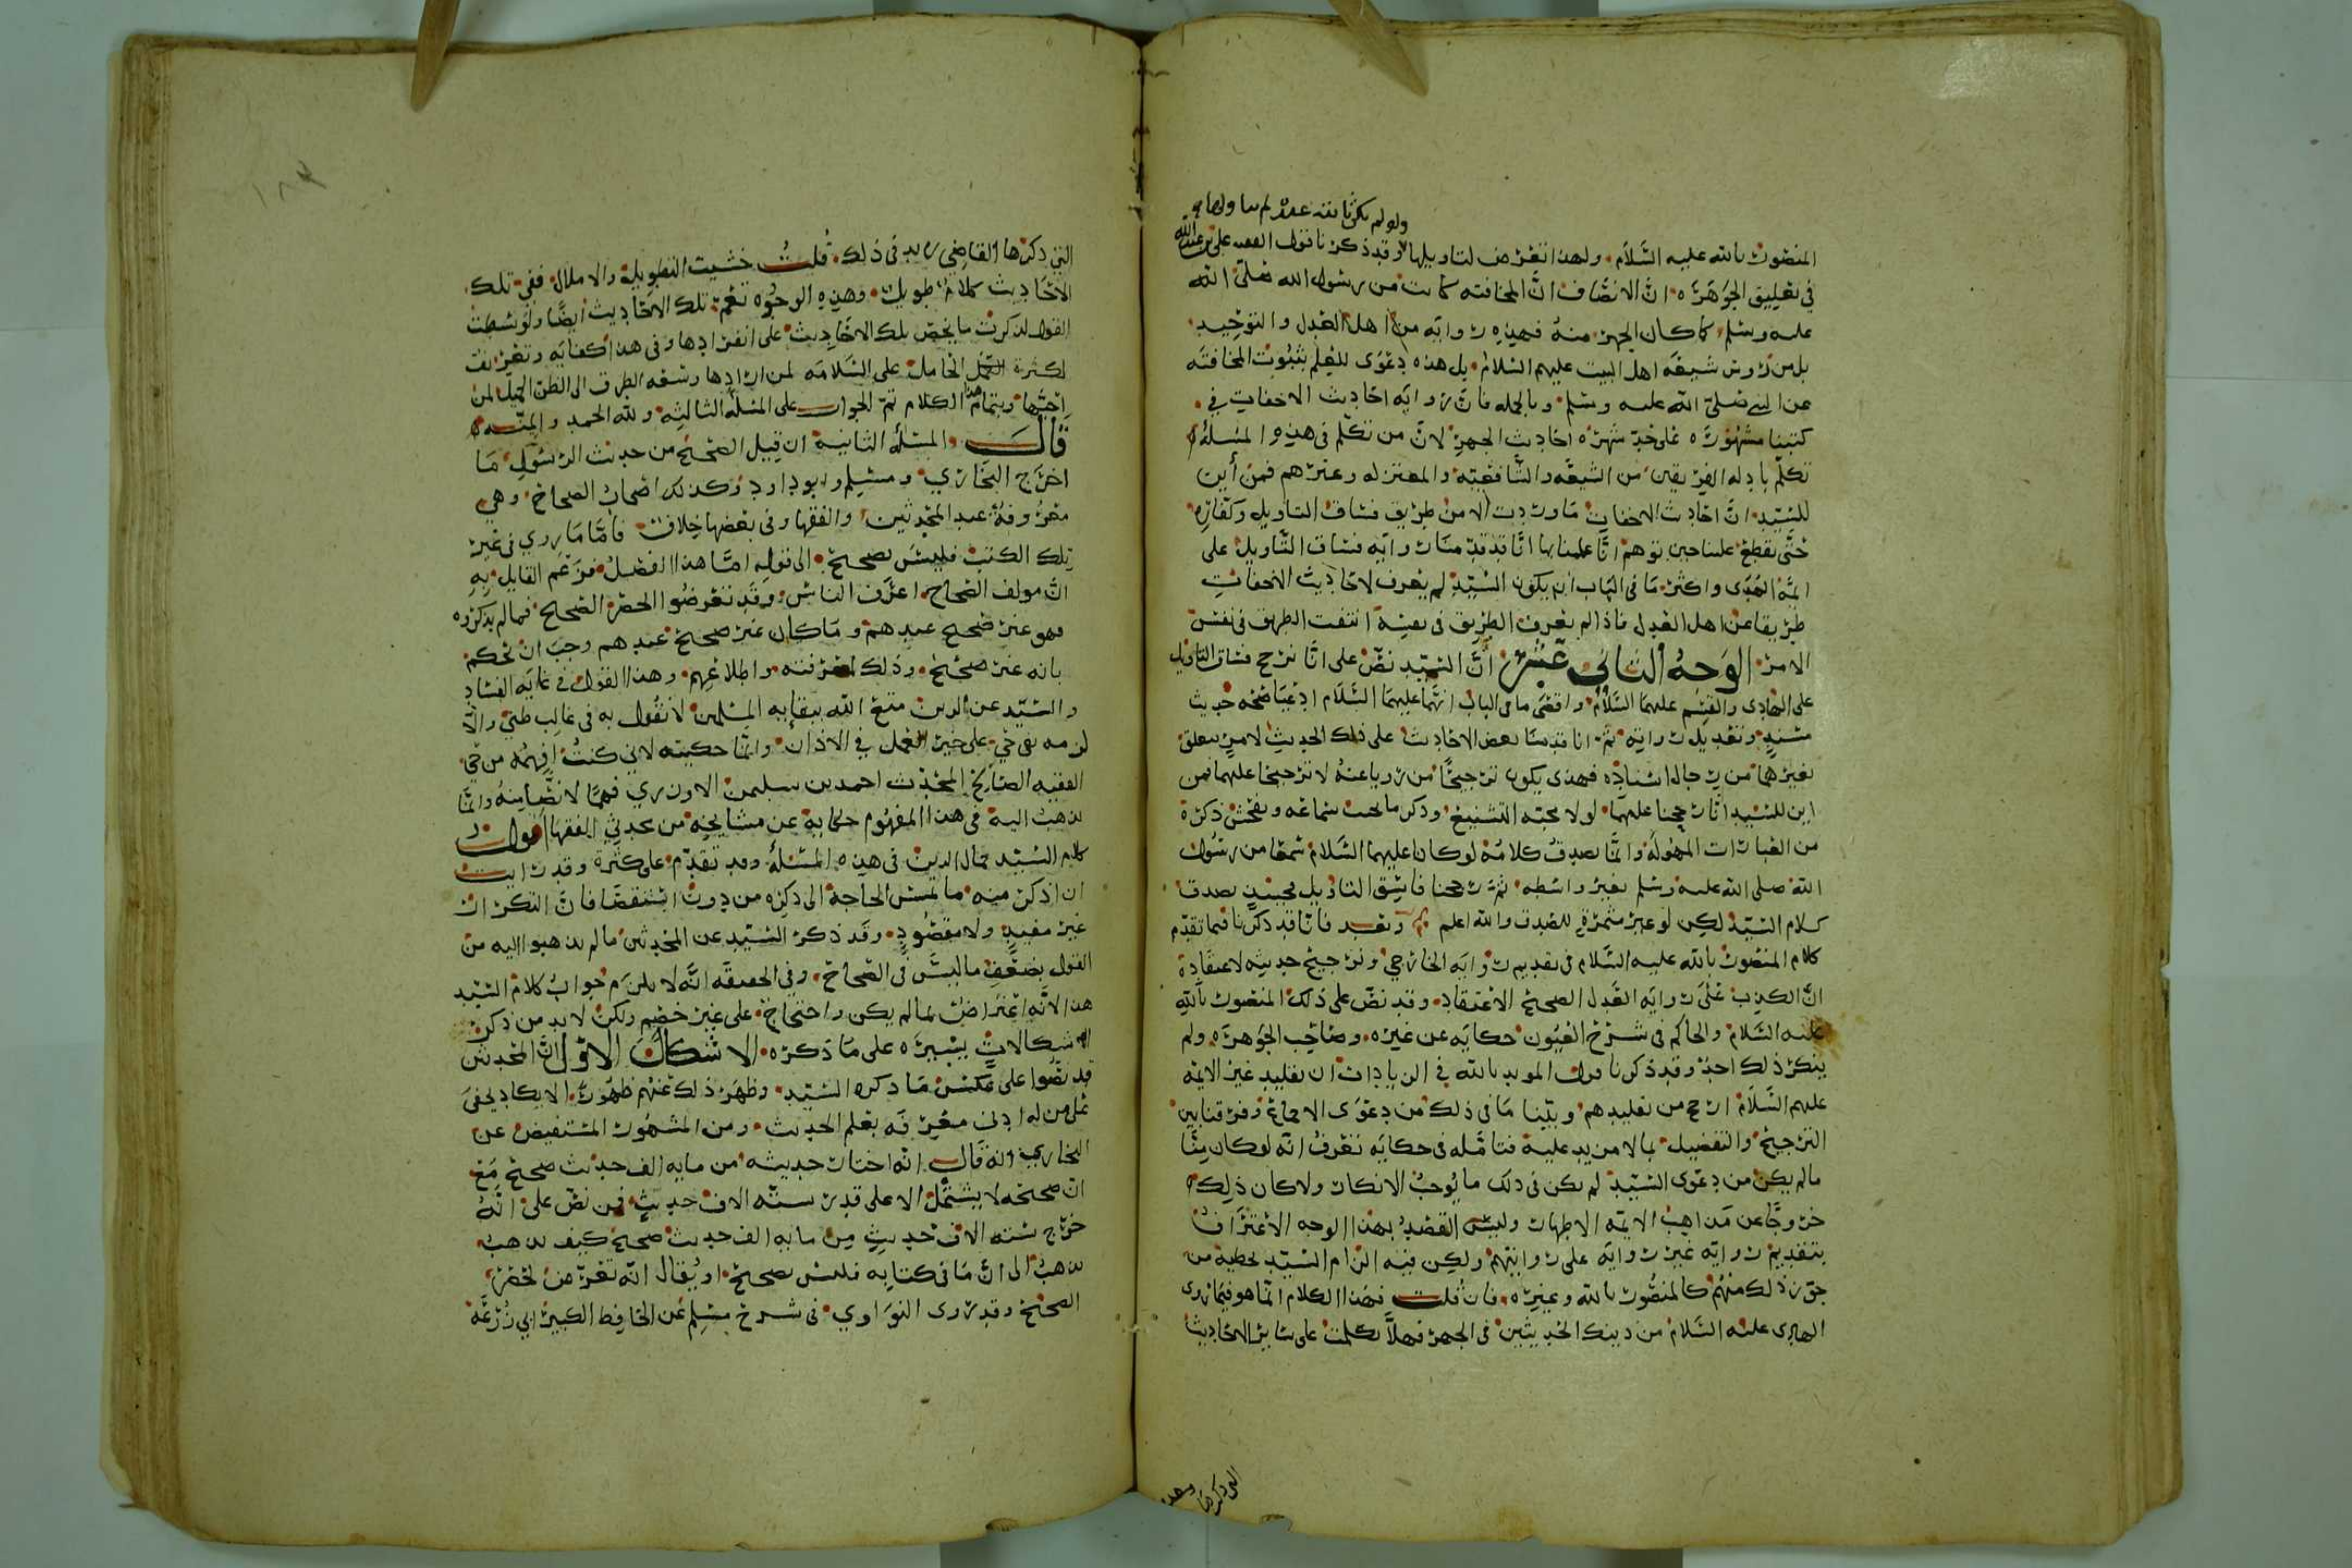 ولو لم يكن ثابتة عنه لم يتاولها
المنصور بالله عليه السلام ولهذا تعرض لتاويلها وقد ذكرنا قول الفقيه علي بن عبد الله
في تعليق الجوهرة ان الانصاف ان المخافته كانت من رسول الله صلى الله
عليه وسلم كما كان الجهر منه فهذه رواية من اهل العدل والتوحيد
بل من رؤس شيعة اهل البيت عليهم السلام بل هذه دعوى للعلم بثبوت المخافته
عن النبي صلى الله عليه وسلم وبالجمله فان رواية احاديث الاخفات في
كتبنا مشهورة على حد شهرة احاديث الجهر لان من تكلم في هذه المسلة
تكلم بادلة الفريقين من الشيعة والشافعية والمعتزله وغيرهم فمن أين
للسيد ان احاديث الاخفات ما وردت الا من طريق فساق التاويل وكفاره
حتى يقطع علينا حين توهم انا علمنا بها انا قد قدمنا رواية فساق التاويل على
ائمة الهدى واكثر ما في الباب ان يكون السيد لم يعرف لاحاديث الاخفات
طريقا عن اهل العدل فاذا لم يعرف الطريق في نفسه انتفت الطريق في نفس
الامر الوجه الثاني عشر ان السيد نص على انا نرجح فساق التاويل
على الهادي والقسم عليهما السلام واقصى ما في الباب انهما عليهما السلام ادعيا صحة حديث
مسند وتعديل رواته ثم انا قدمنا بعض الاحاديث على ذلك الحديث لامر يتعلق
بغيرهما من رجال اسناده فهذى يكون ترجيحًا من رويا عنه لا ترجيحا عليهما فمن
اين للسيد انا رجحنا عليهما لولا محبة التشنيع وذكر ما يجب سماعه ويفحش ذكره
من العبارات المهوله وانما يصدق كلامه لو كانا عليهما السلام سمعا من رسول
الله صلى الله عليه وسلم بغير واسطه ثم رجحنا فاسق التاويل فحينئذ يصدق
كلام السيد لكن لو غير مثمرة للصدق والله اعلم وبعد فانا قد ذكرنا فيما تقدم
كلام المنصور بالله عليه السلام في تقديم رواية الخارجي وترجيح حديثه لاعتقاده
ان الكذب على رواية العدل الصحيح الاعتقاد وقد نص على ذلك المنصور بالله
عليه السلام والحاكم في شرح العيون حكاية عن غيره وصاحب الجوهرة ولم
ينكر ذلك احد وقد ذكرنا قول المويد بالله في الزيادات ان تقليد غير الايمة
عليهم السلام ارجح من تقليدهم وبينا ما في ذلك من دعوى الاجماع وفرقنا بين
الترجيح والتفضيل بما لا مزيد عليه فتامله في حكايه تعرف انه لو كان منا
ما لم يكن من دعوى السيد لم يكن في ذلك ما يوجب الانكار ولا كان ذلك
خروجًا عن مذاهب الائمة الاطهار وليس القصد بهذا الوجه الاعتراف
بتقديم رواية غير رواية على روايتهم ولكن فيه الزام السيد تخطية من
جوز ذلك منهم كالمنصور بالله وغيره فان قلت فهذا الكلام انما هو فيما روى
الهادى عليه السلام من ذينك الحديثين في الجهر فهلا تكلمت على ساير الاحاديث
التي ذكرها القاضي زيد في ذلك قلت خشيت التطويل والاملال ففي تلك
الاحاديث كلام طويل وهذه الوجوه تعم تلك الاحاديث أيضًا ولو بسطت
القول لذكرت ما يخص تلك الاحاديث على انفرادها وفي هذا كفاية وتعريف
لكثرة المحامل على السلامة لمن ارادها وسعة الطرق الى الظن الجميل لمن
احبها وبتمام هذا الكلام تم الجواب على المسلة الثالثة ولله الحمد والمنه
قال والمسئلة الثانية ان قيل الصحيح من حديث الرسول ما
اخرج البخاري ومسلم وابو داود وكذلك اصحاب الصحاح وهي
معروفة عند المحدثين والفقها وفي بعضها خلاف فاما ما روي في غير
تلك الكتب فليس بصحيح الى قوله اما هذا الفصل فزعم القايل به
ان مولف الصحاح اعرف الناس وقد تعرضوا لحصر الصحيح فما لم يذكروه
فهو غير صحيح عندهم وما كان غير صحيح عندهم وجب ان نحكم
بانه غير صحيح وذلك لمعرفته واطلاعهم وهذا القول في غاية الفساد
والسيد عز الدين متع الله ببقايه المسلمين لا نقول به في غالب ظني والا
لزمه نفي حي على خير العمل في الاذان وانما حكيته لاني كنت افهمه من حي
الفقيه الصالح المحدث احمد بن سليمن الاوزري فهما لا نصا منه وانما
يذهب اليه في هذا المفهوم حكاية عن مشايخه من محدثي الفقها اقول
كلام السيد جمال الدين في هذه المسئلة وقد تقدم على كثرة وقد رايت
ان اذكر منه ما تمس الحاجة الى ذكره من دون استقصا فان التكرار
غير مفيد ولا مقصود وقد ذكر السيد عن المحدثين ما لم يذهبوا اليه من
القول بضعف ما ليس في الصحاح وفي الحقيقة انه لا يلزم جواب كلام السيد
هذا لانه اعتراض لما لم يكن واحتجاج على غير خصم ولكن لا بد من ذكر
اشكالات يسيرة على ما ذكره الاشكال الاول ان المحدثين
قد نصوا على عكس ما ذكره السيد وظهر ذلك عنهم ظهورًا لا يكاد يخفى
على من له ادنى معرفة بعلم الحديث ومن المشهور المستفيض عن
البخاري انه قال انه اختار حديثه من ماية الف حديث صحيح مع
ان صحيحه لا يشتمل الا على قدر ستة الاف حديث فمن نص على انه
خرج ستة الاف حديث من ماية الف حديث صحيح كيف يذهب
يذهب الى ان ما في كتابه فليس بصحيح او يقال انه تعرض لحصر
الصحيح وقد روى النواوي في شرح مسلم عن الحافظ الكبير ابي زرعة
التي ذكرها